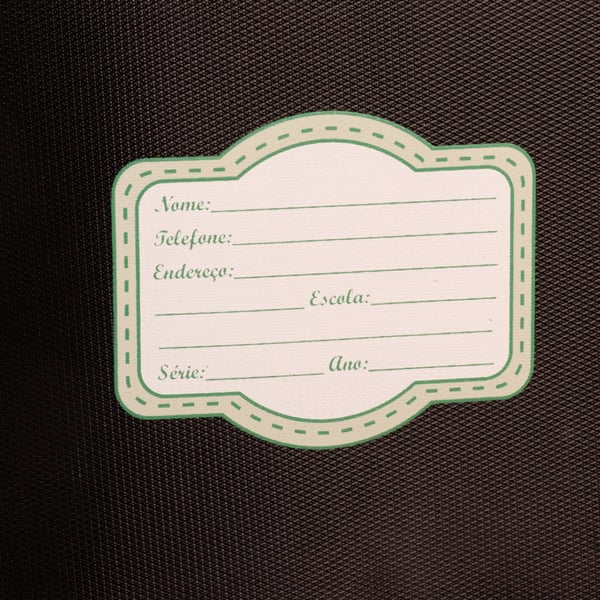 Nome:
Telefone:
Endereço:
Escola:
Série: Ano: